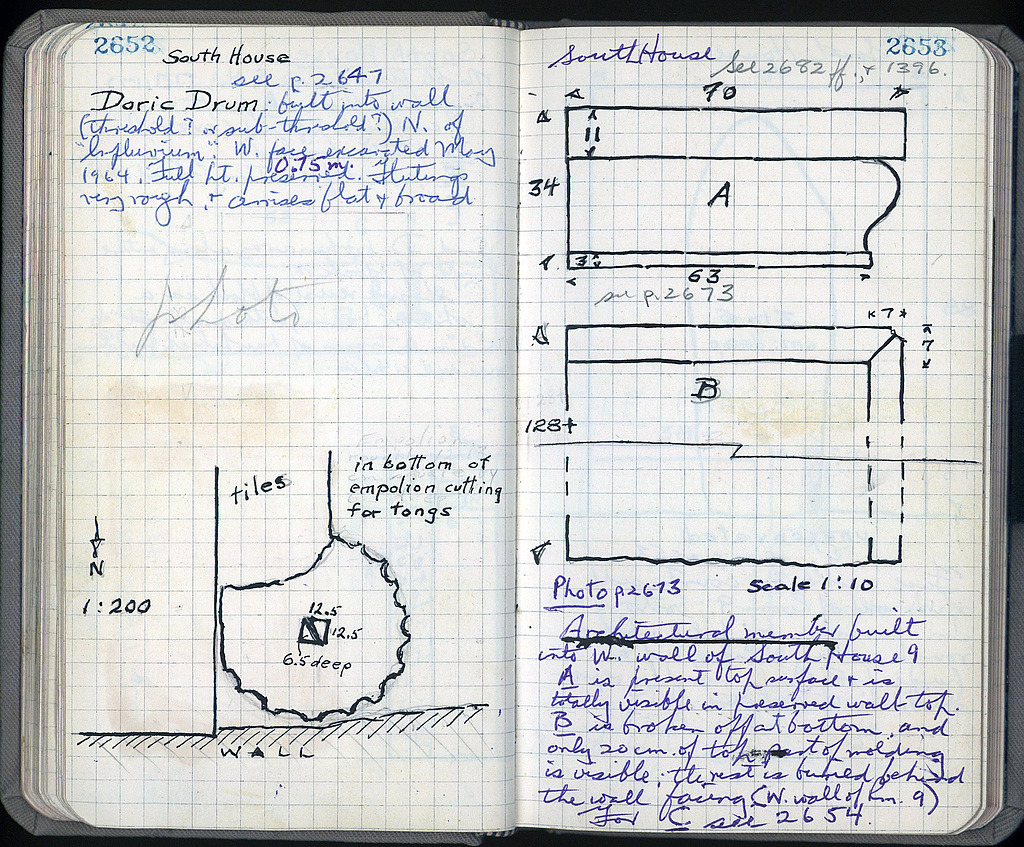 2652
South House
see p. 2647
Doric Drum built into wall
(threshold? or sub-threshold?) N. of
"Impluvium". W. face excavated May
1964. Full ht. preserved. Flutings
0.75 m.
very rough, + arrises flat & broad
photo
tiles
in bottom of
empolion cutting
for tongs
N
1:200
12.5
12.5
6.5 deep
WALL
2653
South House
See 2682 ff, + 1396.
70
11
34
A
3
63
see p. 2673
7
7
B
128+
Photo p 2673
Scale 1:10
Architectural member built
into W. wall of South House 9
A is present top surface & is
totally visible in preserved wall top.
B is broken off at bottom, and
only 20 cm. of top part of molding
is visible; the rest is buried behind
the wall facing (W. wall of rm. 9)
For C see 2654.